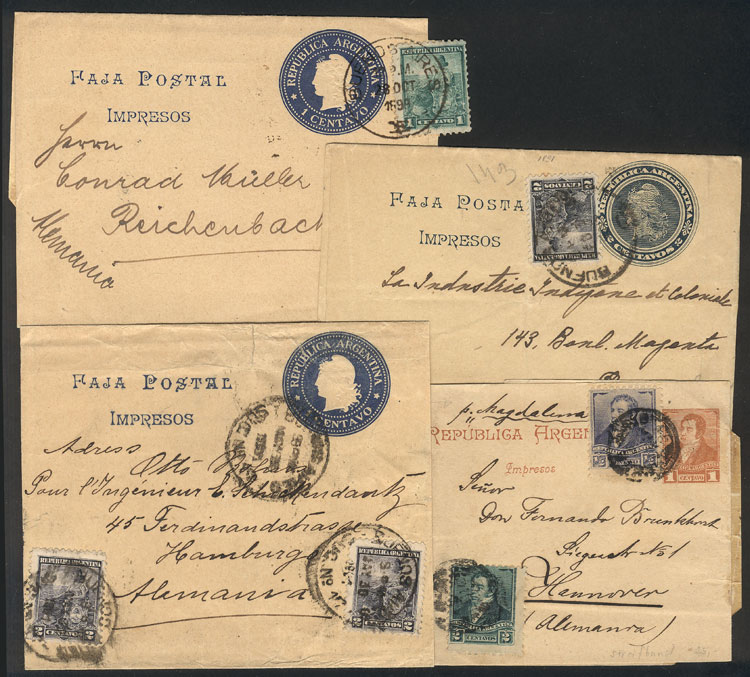 FAJA POSTAL
IMPRESOS
REPÚBLICA ARGENTINA
1 CENTAVO
REPUBLICA ARGENTINA
1 CENTAVO 1
Herrn
Conrad Müller
Reichenbach
Alemania
1403
FAJA POSTA
IMPRESOS
2 CENTAVOS 2
REPUBLICA ARGENTINA
REPÚBLICA ARGENTINA
2 CENTAVOS 2
BUENOS
La Industrie Indigène et Coloniale
143, Boul. Magenta
FAJA POSTAL
IMPRESOS
REPÚBLICA ARGENTINA
CENTAVO
Adress
Otto
Pour l'Ingénieur E. Schickendantz
45 Ferdinandstrasse
Hamburgo
Alemania
REPUBLICA ARGENTINA
2 CENTAVOS 2
REPUBLICA ARGENTINA
2 CENTAVOS 2
p. "Magdalena
REPÚBLICA ARGEN
Impresos
1 CENTAVO 1
Señor
Don Fernando
No 1
Hannover
(Alemania)
2 CENTAVOS 2